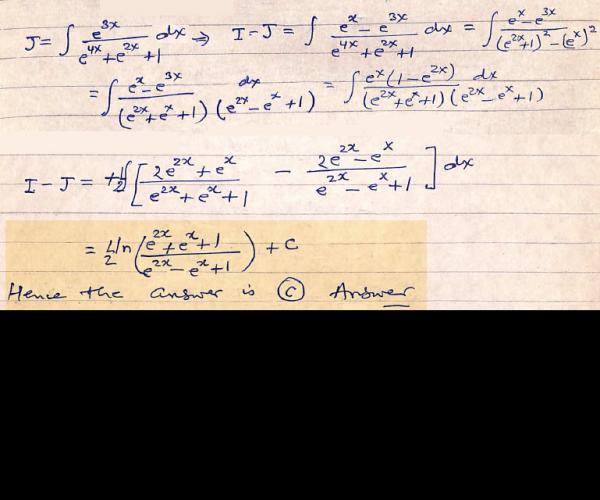 J = ∫ e^{3x}/(e^{4x}+e^{2x}+1) dx ⇒ I - J = ∫ (e^x - e^{3x})/(e^{4x}+e^{2x}+1) dx = ∫ (e^x - e^{3x})/((e^{2x}+1)^2 - (e^x)^2)
= ∫ (e^x - e^{3x})/((e^{2x}+e^x+1)(e^{2x}-e^x+1)) dx = ∫ e^x(1-e^{2x})/((e^{2x}+e^x+1)(e^{2x}-e^x+1)) dx
I - J = +1/2 ∫ [(2e^{2x}+e^x)/(e^{2x}+e^x+1) - (2e^{2x}-e^x)/(e^{2x}-e^x+1)] dx
= 1/2 ln((e^{2x}+e^x+1)/(e^{2x}-e^x+1)) + C
Hence the answer is Ⓒ Answer